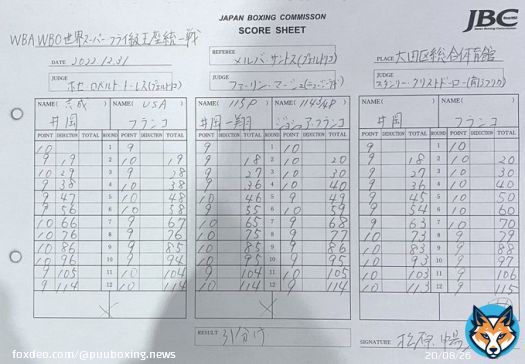 JAPAN BOXING COMMISSON
SCORE SHEET
JBC
WBA WBO世界スーパーフライ級王座統一戦
DATE 2022.12.31
REFEREE メルバ・サントス(プエルトリコ)
PLACE 大田区総合体育館
JUDGE ホセ トーレス(プエルトリコ)
JUDGE
JUDGE スタンリー・クリストドーロー(南アフリカ)
NAME( 志成 ) NAME( USA ) NAME( 115P ) NAME( ) NAME( ) NAME( )
井岡 フランコ 井岡一翔 ジョシュア・フランコ 井岡 フランコ
POINT DEDUCTION TOTAL ROUND POINT DEDUCTION TOTAL POINT DEDUCTION TOTAL ROUND POINT DEDUCTION TOTAL POINT DEDUCTION TOTAL ROUND POINT DEDUCTION TOTAL
10 1 9 9 1 10 9 1 10
9 19 2 10 19 9 18 2 10 20 9 18 2 10 20
10 29 3 9 28 9 27 3 10 30 9 27 3 10 30
9 38 4 10 38 9 36 4 10 40 9 36 4 10 40
9 47 5 10 48 10 46 5 9 49 9 45 5 10 50
9 56 6 10 58 9 55 6 10 59 9 54 6 10 60
10 66 7 9 67 10 65 7 9 68 9 63 7 10 70
10 76 8 9 76 10 75 8 9 77 10 73 8 9 79
10 86 9 9 85 10 85 9 9 86 10 83 9 9 88
10 96 10 9 94 10 95 10 9 95 10 93 10 9 97
9 105 11 10 104 9 104 11 10 105 10 103 11 9 106
9 114 12 10 114 10 114 12 9 114 10 113 12 9 115
RESULT 引分け
SIGNATURE
foxdeo.com/@puuboxing.news
20/08/26